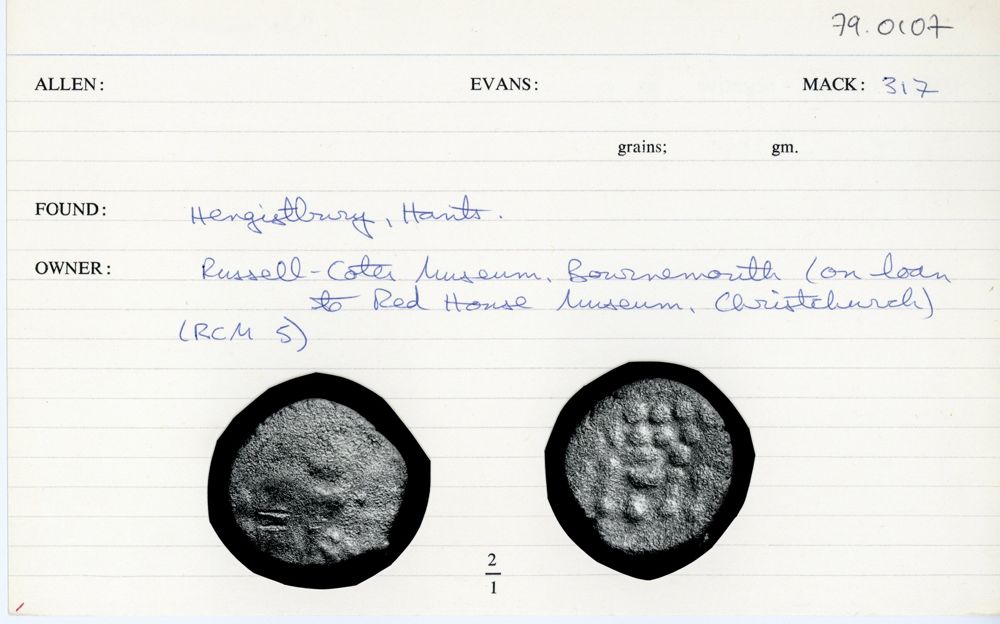 79.0107
ALLEN: EVANS: MACK: 317
grains; gm.
FOUND: Hengistbury, Hants.
OWNER: Russell-Cotes Museum, Bournemouth (on loan
to Red House Museum, Christchurch)
(RCM 5)
2
1